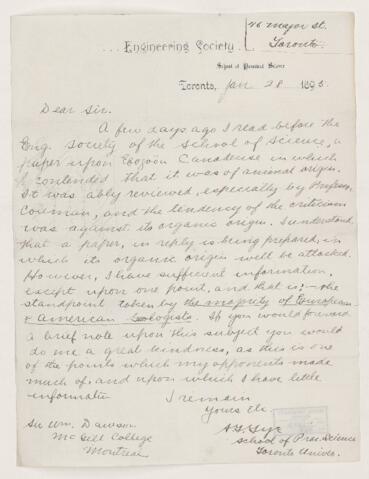 46 Major St.
Toronto.
Engineering Society.
School of Practical Science
Toronto, Jan 28 1895.
Dear Sir.
A few days ago I read before the
Eng. Society of the School of Science, a
paper upon Eozoön Canadense in which
I contended that it was of animal origin.
It was ably reviewed, especially by Professor
Coleman, and the tendency of the criticism
was against its organic origin. I understand
that a paper, in reply is being prepared, in
which its organic origin will be attacked.
However, I have sufficient information,
except upon one point, and that is:- the
standpoint taken by the majority of European
& American Geologists. If you would forward
a brief note upon this subject you would
do me a great kindness, as this is one
of the points which my opponents made
much of, and upon which I have little
information
I remain
Yours Etc.
Sir Wm. Dawson
School of Prac. Science
McGill College
Toronto Univ.
Montreal